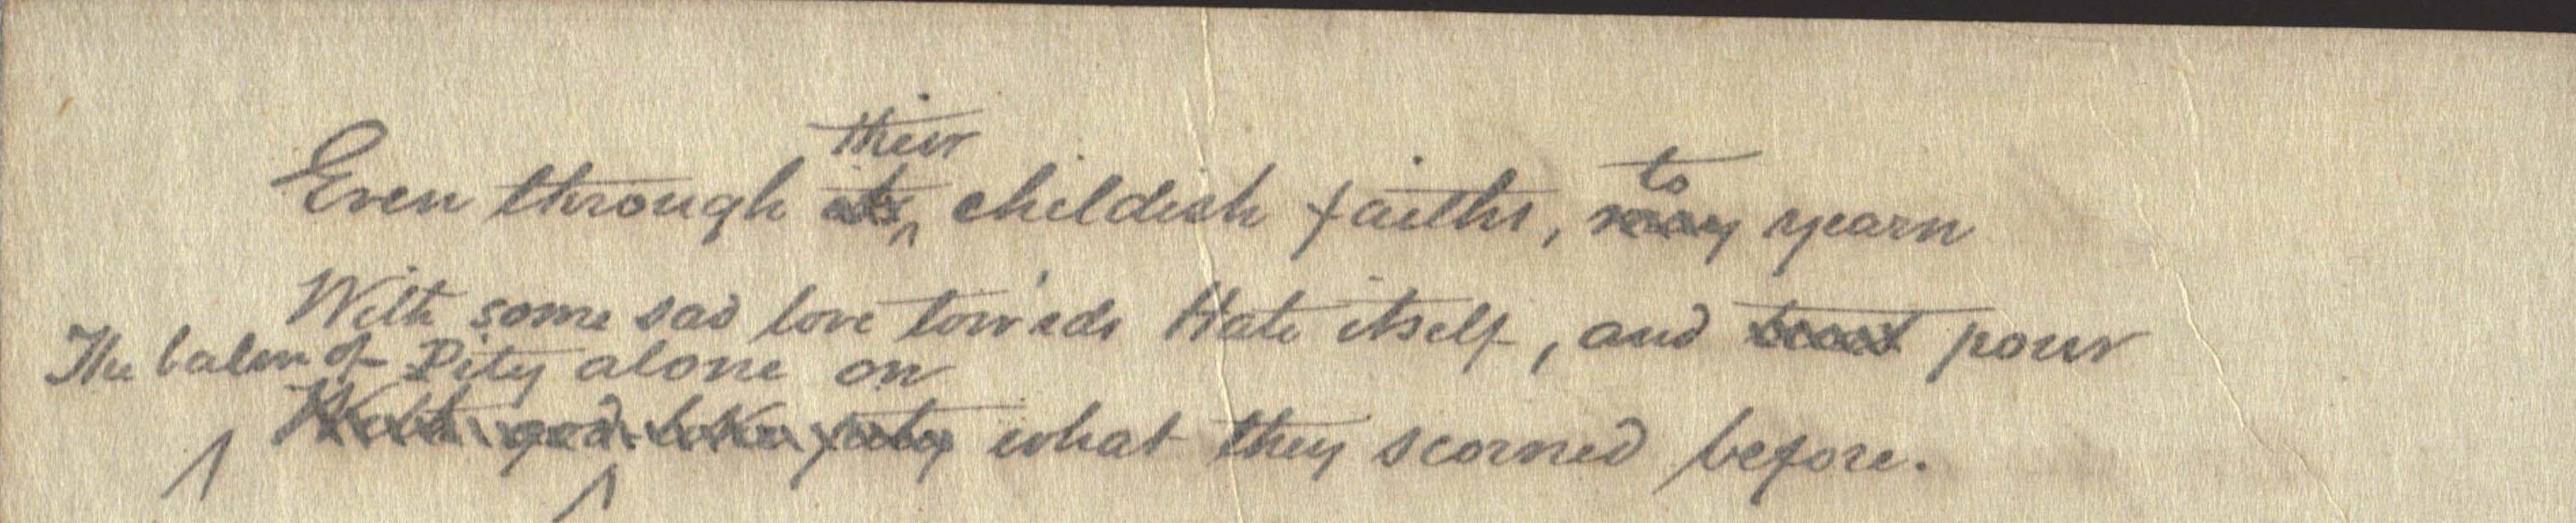 their
Even through its childish faiths, to may yearn
With some sad love tow'rds Hate itself, and pour
The balm of Pity alone on
With god-like pity what they scorned before.